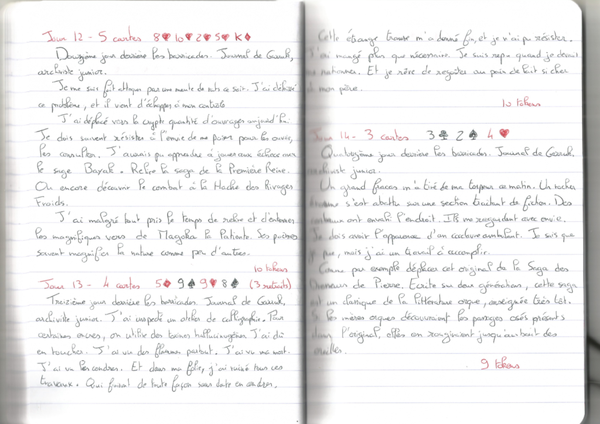 Jour 12 - 5 cartes 8♥ 10♥ 2♥ 5♥ K♦
Douzième jour derrière les barricades. Journal de Garuk,
archiviste junior.
Je me suis fait attaquer par une meute de rats ce soir. J'ai
ce problème, et il vient d'échapper à mon contrôle
J'ai déplacé vers la crypte quantité d'ouvrages aujourd'hui.
Je dois souvent résister à l'envie de me poser pour les ouvrir,
les consulter. J'aurais pu apprendre à jouer aux échecs avec
le sage Relire la saga de la Première Reine.
Ou encore découvrir le combat à la Hache des Rivages
Froids.
J'ai malgré tout pris le temps de relire et d'
les magnifiques vers de Magoha la Patiente. Ses poèmes
savent magnifier la nature comme peu d'autres.
10 tokens
Jour 13 - 4 cartes 5♦ 9♠ 9♥ 8♠ (3 restants)
Treizième jour derrière les barricades. Journal de Garuk,
archiviste junior. J'ai inspecté un atelier de calligraphie. Pour
certaines encres, on utilise des baies hallucinogènes. J'ai dû
en toucher. J'ai vu des flammes partout. J'ai vu ma mort.
J'ai vu les cendres. Et dans ma folie, j'ai ruiné tous ces
travaux. Qui finiront de toute façon sans doute en cendres.
Cette étrange transe m'a donné faim, et je n'ai pu résister.
J'ai mangé plus que nécessaire. Je suis repu quand je devrais
me rationner. Et je rêve de
mon père.
10 tokens
Jour 14 - 3 cartes 3♠ 2♠ 4♥
Quatorzième jour derrière les barricades. Journal de Garuk,
archiviste junior.
Un grand fracas m'a tiré de ma torpeur ce matin. Un rocher
s'est abattu sur une section traitant de fiction. Des
ont envahi l'endroit. Ils me regardent avec envie.
Je dois avoir l'apparence d'un cadavre ambulant. Je suis que
peu, mais j'ai un travail à accomplir.
Comme par exemple déplacer cet original de la Saga des
de Pierre. Écrite sur deux générations, cette saga
est un classique de la littérature orque, enseignée très tôt.
Si les mères orques découvraient les passages osés présents
dans l'original, elles en rougiraient jusqu'au bout des
oreilles.
9 tokens